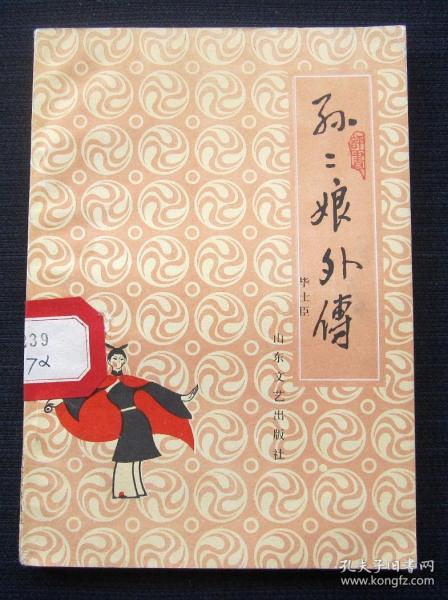 孙二娘外傳
評書
毕士臣
山东文艺出版社
239
7α
孔夫子旧书网
www.kongfz.com